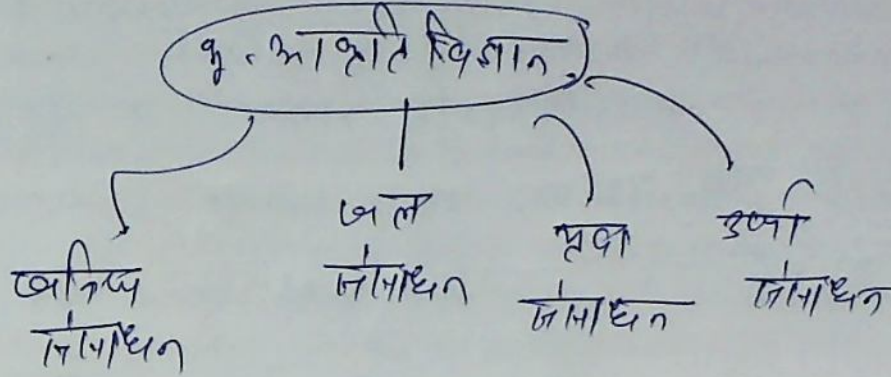 भू-आकृति विज्ञान
खनिज संसाधन
जल संसाधन
मृदा संसाधन
उर्जा संसाधन